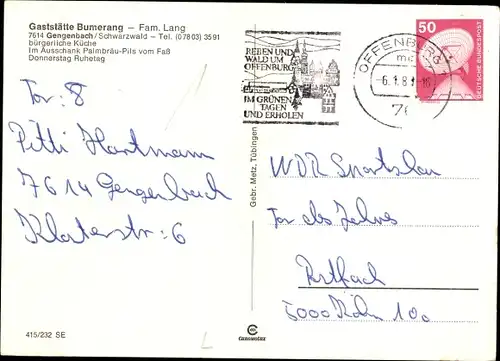 Gaststätte Bumerang – Fam. Lang
7614 Gengenbach/Schwarzwald – Tel. (07803) 3591
bürgerliche Küche
Im Ausschank Palmbräu-Pils vom Faß
Donnerstag Ruhetag
Tor: 8
Pitti Hartmann
7614 Gengenbach
Klosterstr: 6
415/232 SE
Gebr. Metz, Tübingen
REBEN UND
WALD UM
OFFENBURG
IM GRÜNEN
TAGEN
UND ERHOLEN
OFFENBURG
6.1.8
76
50
DEUTSCHE BUNDESPOST
WDR Sportschau
Tor des Jahres
Postfach
5000 Köln 100